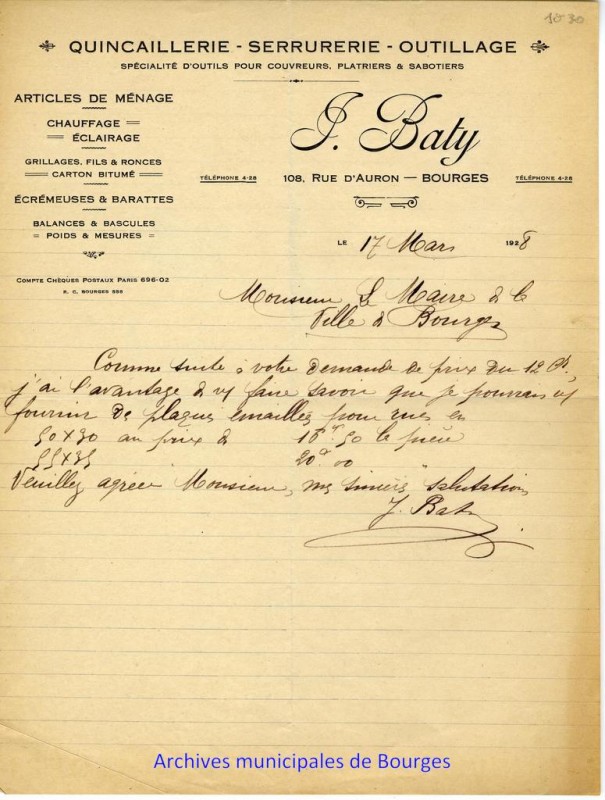 1030
QUINCAILLERIE - SERRURERIE - OUTILLAGE
SPÉCIALITÉ D'OUTILS POUR COUVREURS, PLATRIERS & SABOTIERS
ARTICLES DE MÉNAGE
CHAUFFAGE
ÉCLAIRAGE
GRILLAGES, FILS & RONCES
CARTON BITUMÉ
ÉCRÉMEUSES & BARATTES
BALANCES & BASCULES
POIDS & MESURES
COMPTE CHÈQUES POSTAUX PARIS 696-02
R. C. BOURGES 555
J. Baty
TÉLÉPHONE 4-28
108, RUE D'AURON — BOURGES
TÉLÉPHONE 4-28
LE 17 Mars 1928
Monsieur Le Maire de la
Ville de Bourges
Comme suite à votre demande de prix du 12 Ct,
j'ai l'avantage de vs faire savoir que je pourrais vs
fournir des plaques émaillées pour rues en
50 x 30 au prix de 18 fr 50 la pièce
55 x 35 20 fr 00 "
Veuillez agréer Monsieur, mes sincères salutations
J. Baty
Archives municipales de Bourges